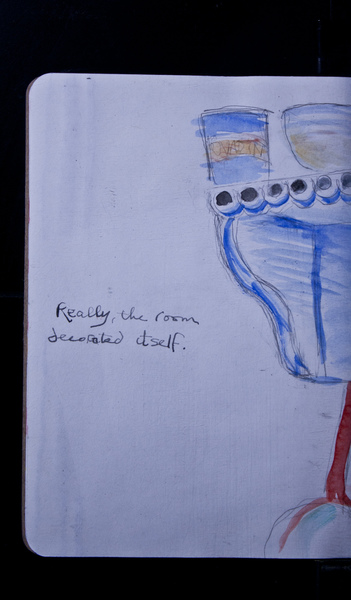 Really, the room
decorated itself.